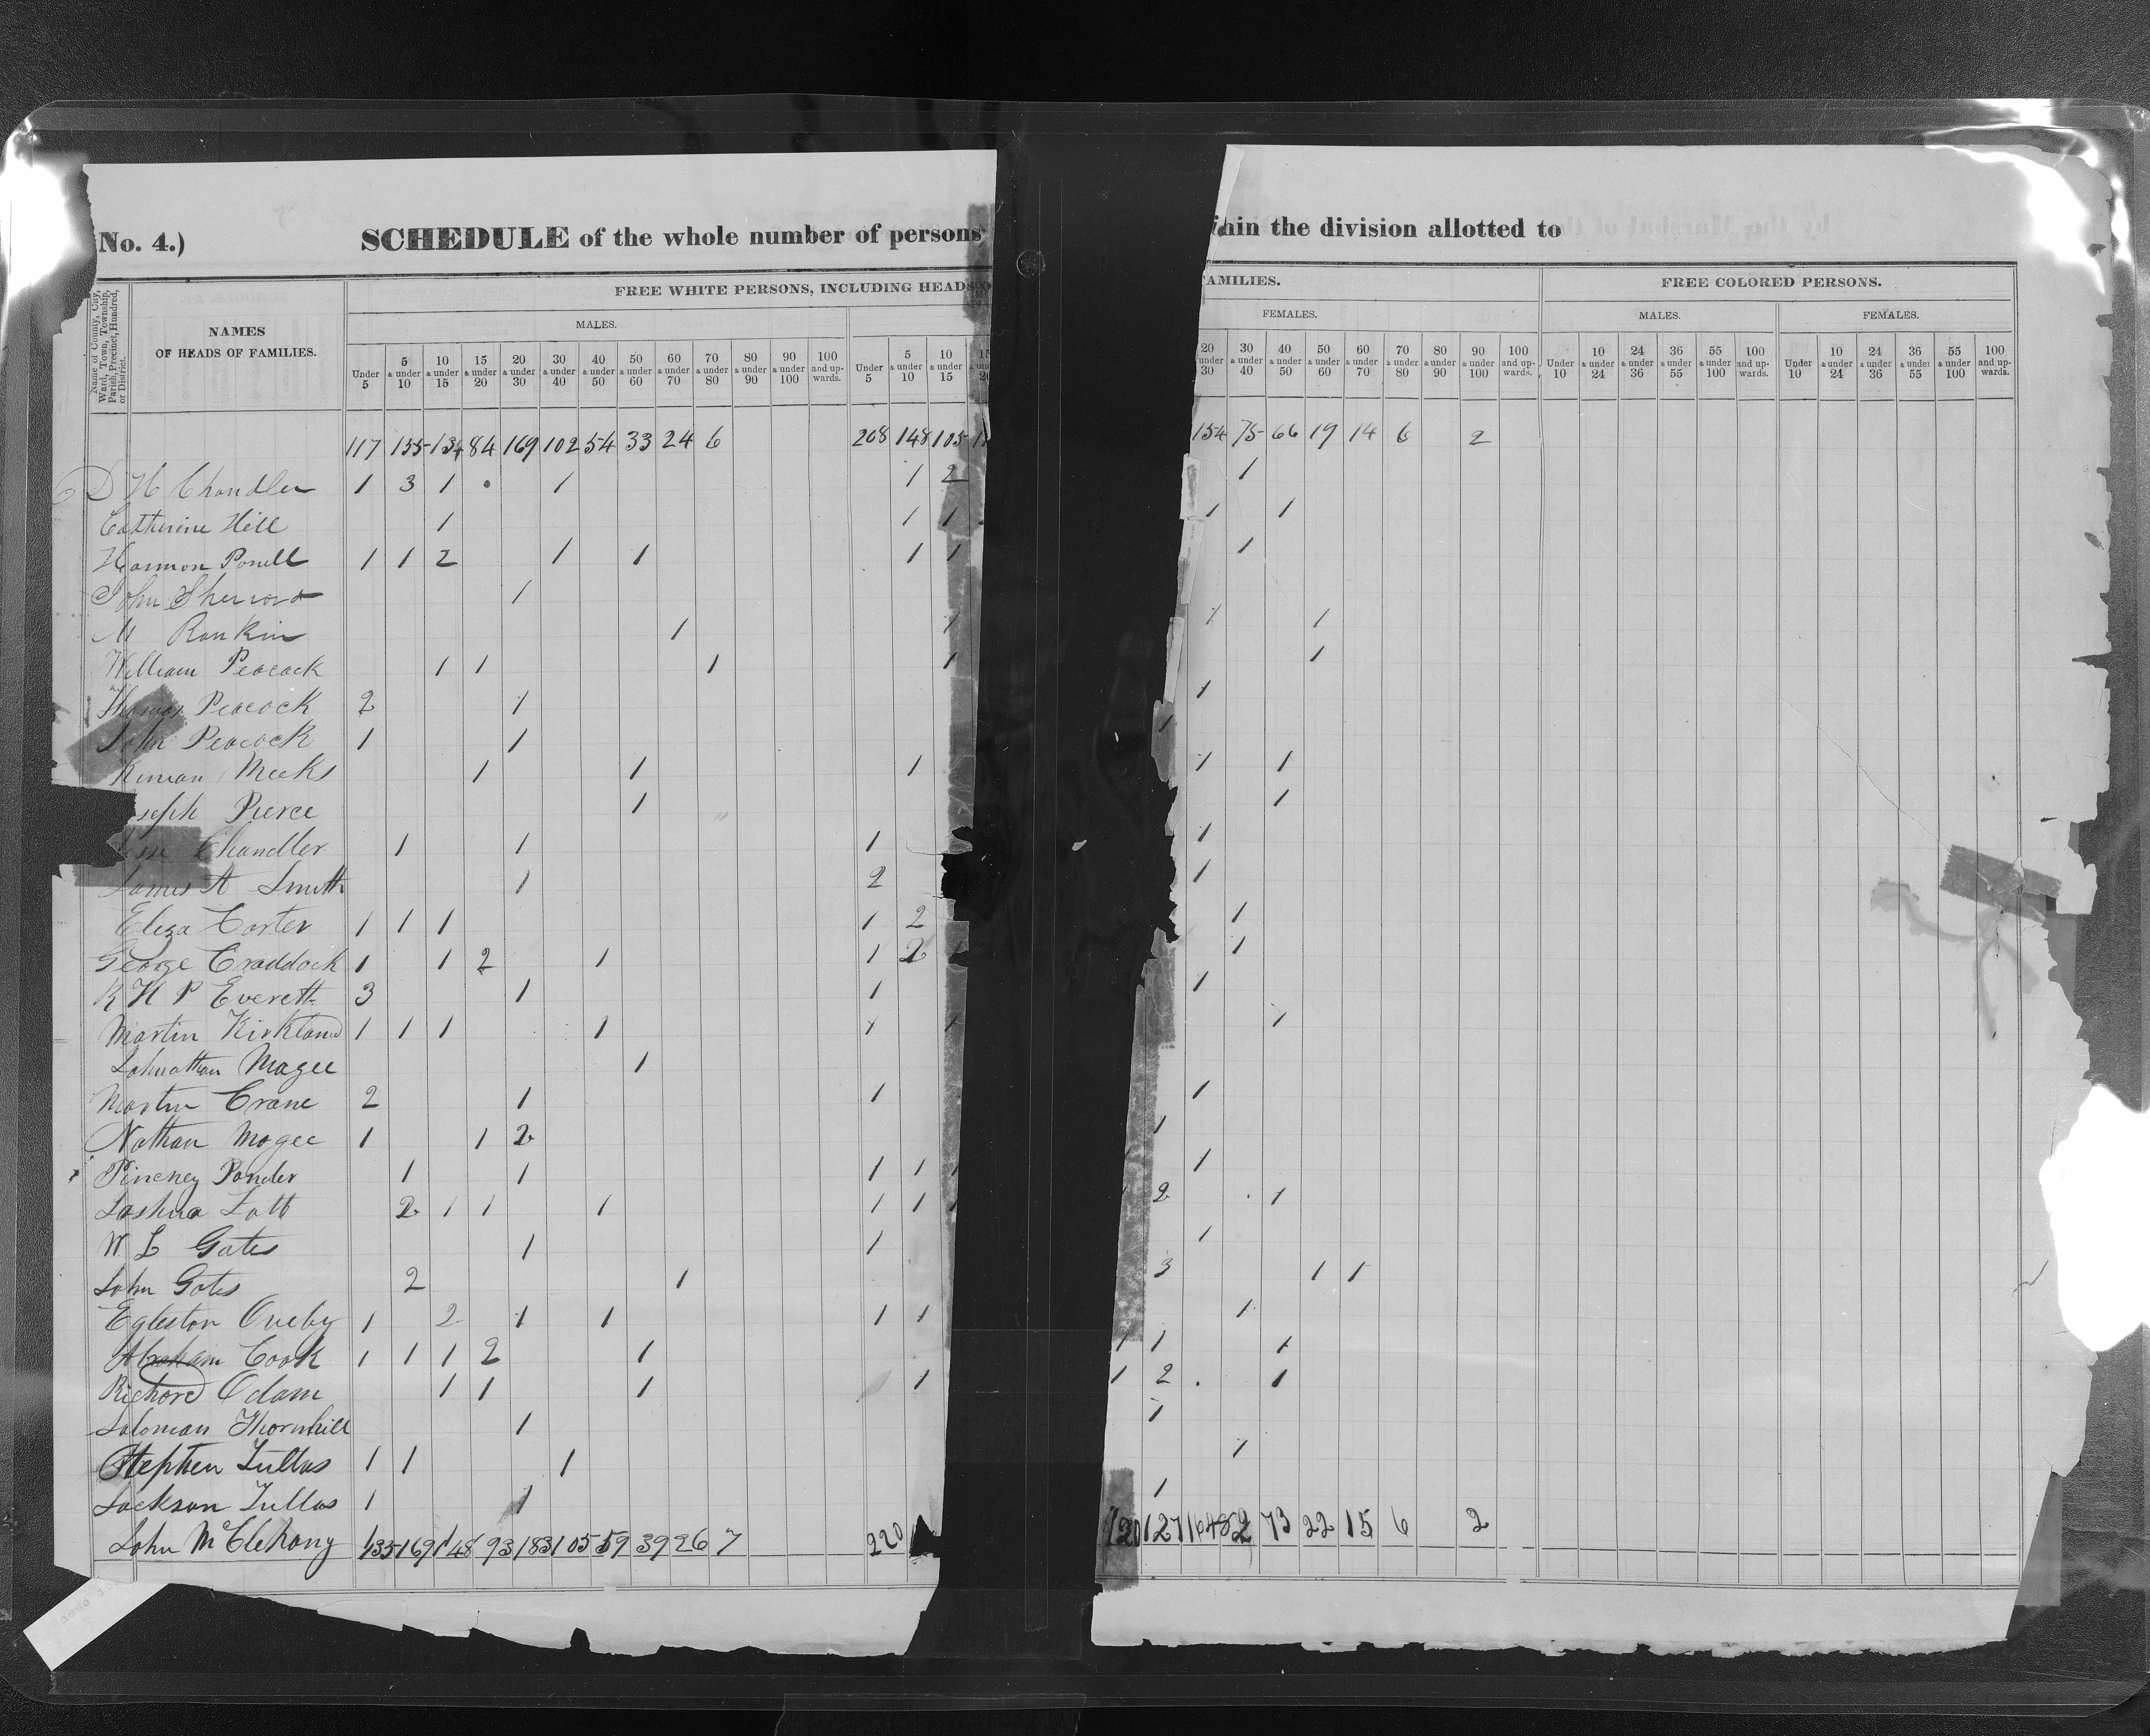 No. 4.) SCHEDULE of the whole number of persons within the division allotted to
FREE WHITE PERSONS, INCLUDING HEADS O FAMILIES. FREE COLORED PERSONS.
Name of County, City, Ward, Town, Township, Parish, Precinct, Hundred, or District.
NAMES OF HEADS OF FAMILIES.
MALES. FEMALES. MALES. FEMALES.
Under 5 5 & under 10 10 & under 15 15 & under 20 20 & under 30 30 & under 40 40 & under 50 50 & under 60 60 & under 70 70 & under 80 80 & under 90 90 & under 100 100 and upwards. Under 5 5 & under 10 10 & under 15 20 & under 30 30 & under 40 40 & under 50 50 & under 60 60 & under 70 70 & under 80 80 & under 90 90 & under 100 100 and upwards. Under 10 10 & under 24 24 & under 36 36 & under 55 55 & under 100 100 and upwards. Under 10 10 & under 24 24 & under 36 36 & under 55 55 & under 100 100 and upwards.
117 155 134 84 169 102 54 33 24 6 208 148 105 154 75 66 19 14 6 2
D H Chandler 1 3 1 1 1 2 1
Catherine Hill 1 1 1 1 1
Harmon Powell 1 1 2 1 1 1 1 1
John Sherrord 1
M Rankin 1 1 1 1
William Peacock 1 1 1 1 1
Thomas Peacock 2 1 1
John Peacock 1 1 1
Kinian Meeks 1 1 1 1 1
oseph Pierce 1 1
Chandler 1 1 1 1
James A Smith 1 2 1
Eliza Carter 1 1 1 1 2 1
George Craddock 1 1 2 1 1 2 1 1
R H P Everett 3 1 1 1
Martin Kirkland 1 1 1 1 1 1 1
Johnathan Magee 1
Martin Crane 2 1 1 1
Nathan Magee 1 1 2 1
Pinckney Ponder 1 1 1 1 1 1
Joshua Lott 2 1 1 1 1 1 1 2 1
W L Gates 1 1 1
John Gates 2 1 3 1 1
Egleston Oneby 1 2 1 1 1 1 1
Abraham Cook 1 1 1 2 1 1 1 1
Richard Odam 1 1 1 1 1 2 1
Soloman Thornhill 1 1
Stephen Tullos 1 1 1 1
Jackson Tullos 1 1 1
John McElehany 135 169 148 93 183 105 59 39 26 7 220 120 127 73 22 15 6 2